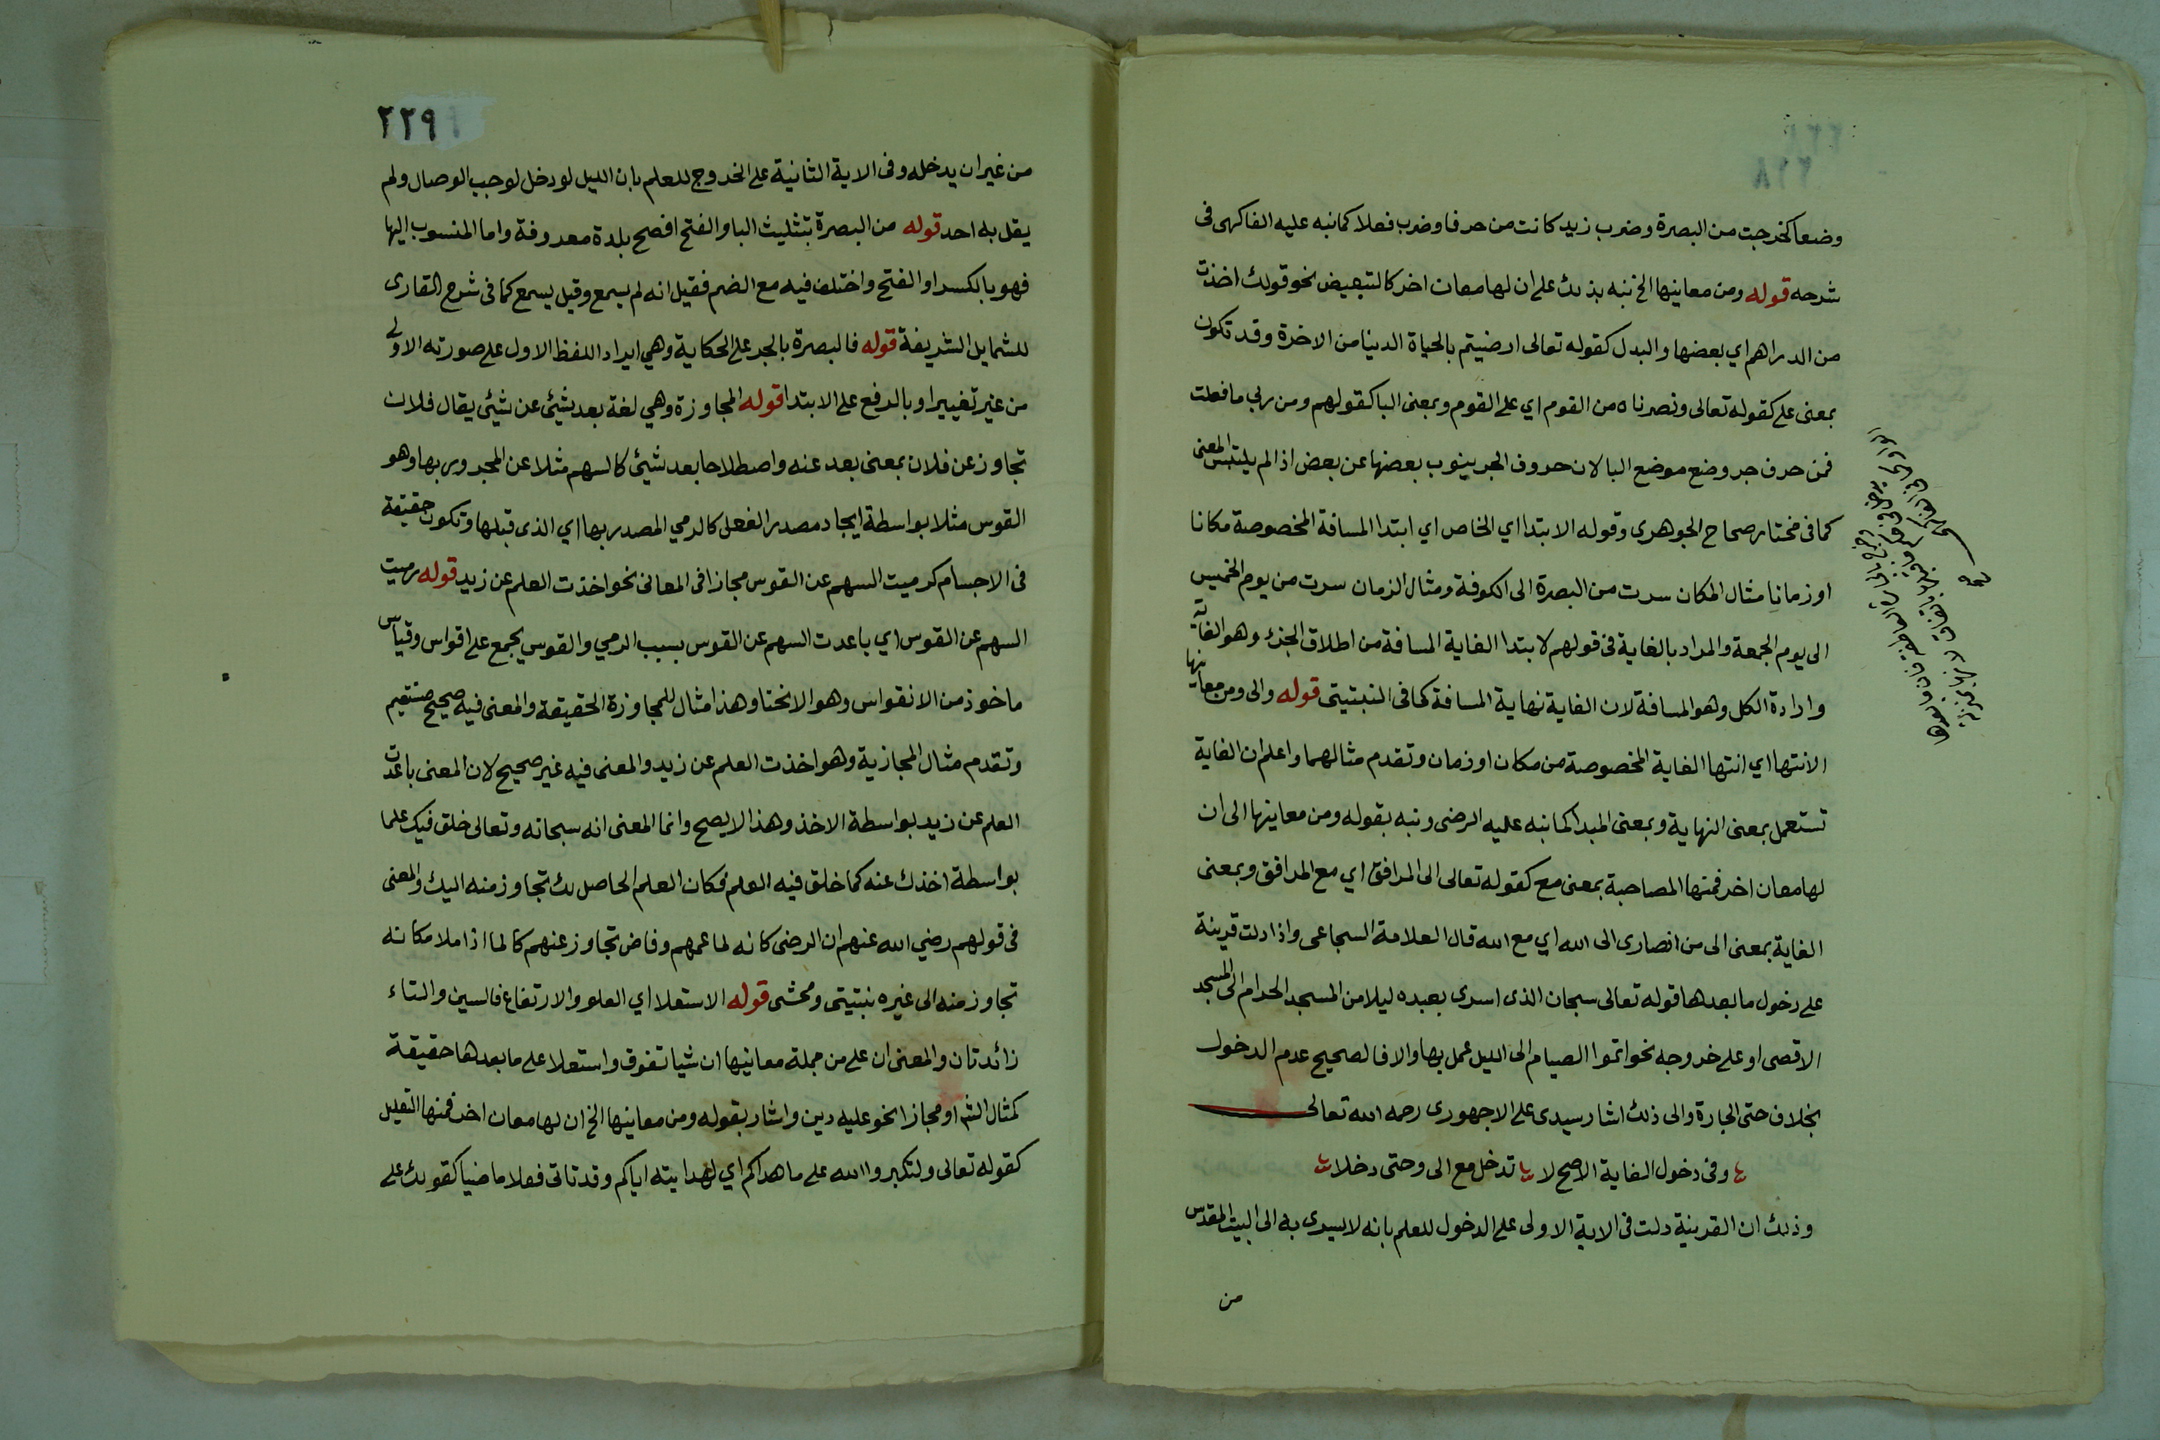 وضعا كخرجت من البصرة وضرب زيد كانت من حرفا وضرب فعلا كما نبه عليه الفاكهى فى
شرحه قوله ومن معانيها الخ نبه بذلك على ان لها معان اخر كالتبعيض نحو قولك اخذت
من الدراهم اي بعضها والبدل كقوله تعالى ارضيتم بالحياة الدنيا من الاخرة وقد تكون
بمعنى على كقوله تعالى ونصرناه من القوم اي على القوم وبمعنى البا كقولهم ومن ربي ما فعلت
فمن حرف جر وضع موضع البا لان حروف الجر ينوب بعضها عن بعض اذا لم يلتبس المعنى
كما فى مختار صحاح الجوهرى وقوله الابتدا اي الخاص اي ابتدا المسافة المخصوصة مكانا
او زمانا مثال المكان سرت من البصرة الى الكوفة ومثال الزمان سرت من يوم الخميس
الى يوم الجمعة والمراد بالغاية فى قولهم لابتدا الغاية المسافة من اطلاق الجزء وهو الغاية
وارادة الكل وهو المسافة لان الغاية نهاية المسافة كما فى النبتيتى قوله والى ومن معانيها
الانتها اي انتها الغاية المخصوصة من مكان او زمان وتقدم مثالهما واعلم ان الغاية
تستعمل بمعنى النهاية وبمعنى المبدا كما نبه عليه الرضى ونبه بقوله ومن معاينها الى ان
لها معان اخر فمنها المصاحبة بمعنى مع كقوله تعالى الى المرافق اي مع المرافق وبمعنى
الغاية بمعنى الى من انصارى الى الله اي مع الله قال العلامة السجاعى واذا دلت قرينة
على دخول ما بعدها قوله تعالى سبحان الذى اسرى بعبده ليلا من المسجد الحرام الى المسجد
الاقصى او على خروجه نحو اتموا الصيام الى الليل عمل بها والا فالصحيح عدم الدخول
بخلاف حتى الجارة والى ذلك اشار سيدى على الاجهورى رحمه الله تعالى
وفى دخول الغاية الاصح لا تدخل مع الى وحتى دخلا
وذلك ان القرينة دلت فى الاية الاولى على الدخول للعلم بانه لا يسرى به الى البيت المقدس
من
٢٢٩
من غير ان يدخله وفى الاية الثانية على الخروج للعلم بان الليل لو دخل لوجب الوصال ولم
يقل به احد قوله من البصرة بتثليث البا والفتح افصح بلدة معروفة واما المنسوب اليها
فهو بالكسر او الفتح واختلف فيه مع الضم فقيل انه لم يسمع وقيل يسمع كما فى شرح القارى
للشمايل الشريفة قوله فالبصرة بالجر على الحكاية وهي ايراد اللفظ الاول على صورته الاولى
من غير تغيير او بالرفع على الابتدا قوله المجاوزة وهي لغة بعد شيئ عن شيئ يقال فلان
تجاوز عن فلان بمعنى بعد عنه واصطلاحا بعد شيئ كالسهم مثلا عن المجرور بها وهو
القوس مثلا بواسطة ايجاد مصدر الفعل كالرمي المصدر بها اي الذى قبلها وتكون حقيقة
فى الاجسام كرميت السهم عن القوس مجازا فى المعانى نحو اخذت العلم عن زيد قوله رميت
السهم عن القوس اي باعدت السهم عن القوس بسبب الرمي والقوس يجمع على اقواس وقياس
ماخوذ من الانقواس وهو الانحنا وهذا مثال للمجاوزة الحقيقة والمعنى فيه صحيح مستقيم
وتقدم مثال المجازية وهو اخذت العلم عن زيد والمعنى فيه غير صحيح لان المعنى باعدت
العلم عن زيد بواسطة الاخذ وهذا لا يصح وانما المعنى انه سبحانه وتعالى خلق فيك علما
بواسطة اخذك عنه كما خلق فيه العلم فكان العلم الحاصل لك تجاوز منه اليك والمعنى
فى قولهم رضي الله عنهم ان الرضى كانه لما عمهم وفاض تجاوز عنهم كالما اذا ملا مكانه
تجاوز منه الى غيره نبتيتى ومحشى قوله الاستعلا اي العلو والارتفاع فالسين والتاء
زائدتان والمعنى ان على من جملة معانيها ان شيا تفوق واستعلا على ما بعدها حقيقة
كمثال الشر او مجازا نحو عليه دين واشار بقوله ومن معانيها الخ ان لها معان اخر فمنها التعليل
كقوله تعالى ولتكبروا الله على ما هداكم اي لهدايته اياكم وقد تاتى فعلا ماضيا كقولك على